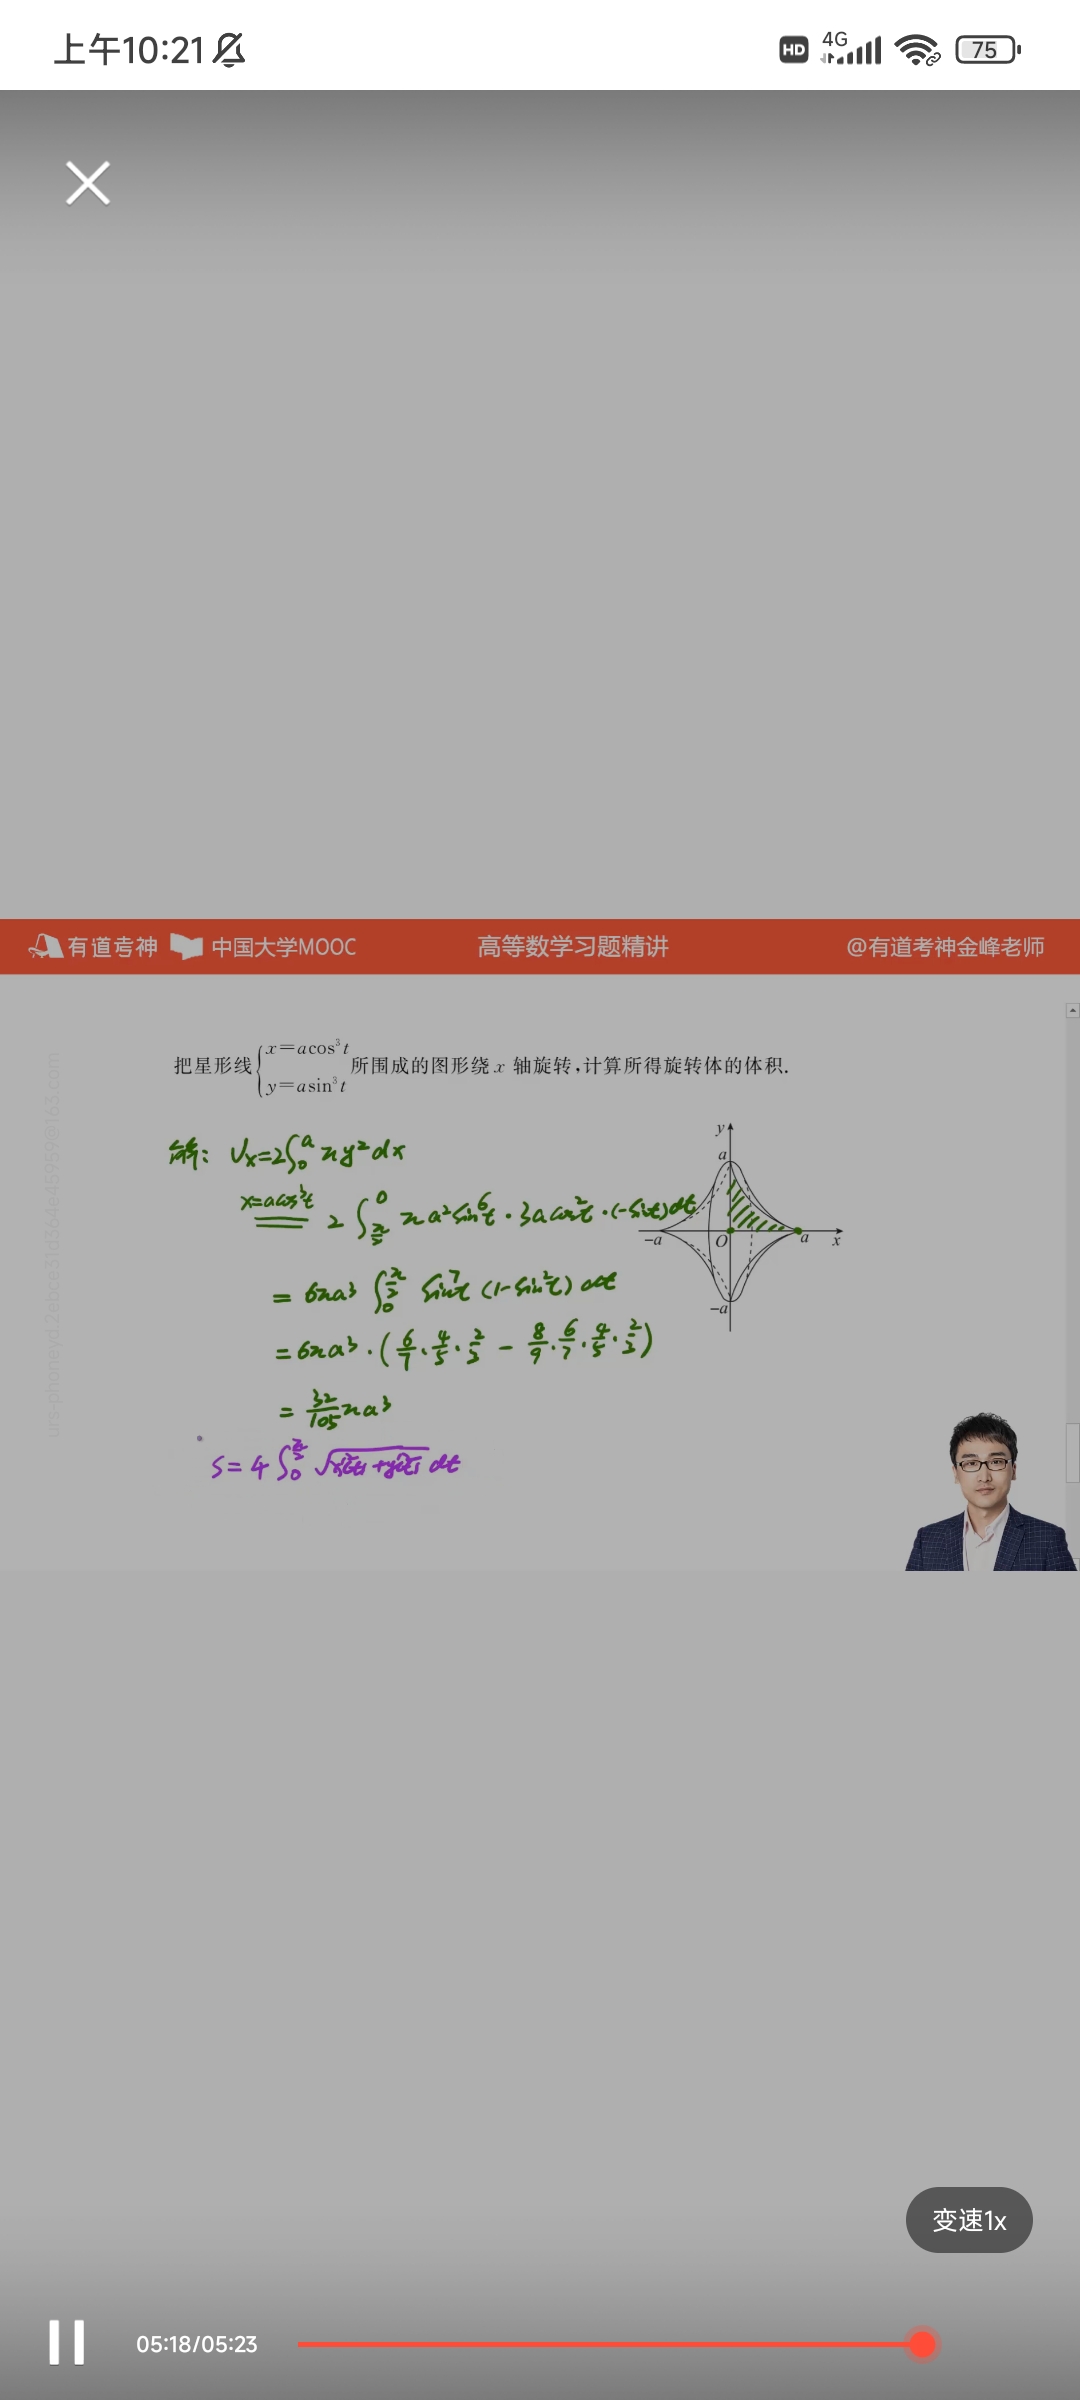 上午10:21 HD 4G 75
有道考神 中国大学MOOC 高等数学习题精讲 @有道考神金峰老师
把星形线{x=acos³t y=asin³t 所围成的图形绕 x 轴旋转,计算所得旋转体的体积.
解: Vx=2∫₀ᵃ πy²dx
x=acos³t
2∫_{π/2}^0 πa²sin⁶t·3acos²t·(-sint)dt
= 6πa³ ∫_0^{π/2} sin⁷t (1-sin²t) dt
=6πa³·(6/7·4/5·2/3 - 8/9·6/7·4/5·2/3)
= 32/105 πa³
S=4∫_0^{π/2} √(x'²(t)+y'²(t)) dt
y
a
-a O a x
-a
变速1x
05:18/05:23